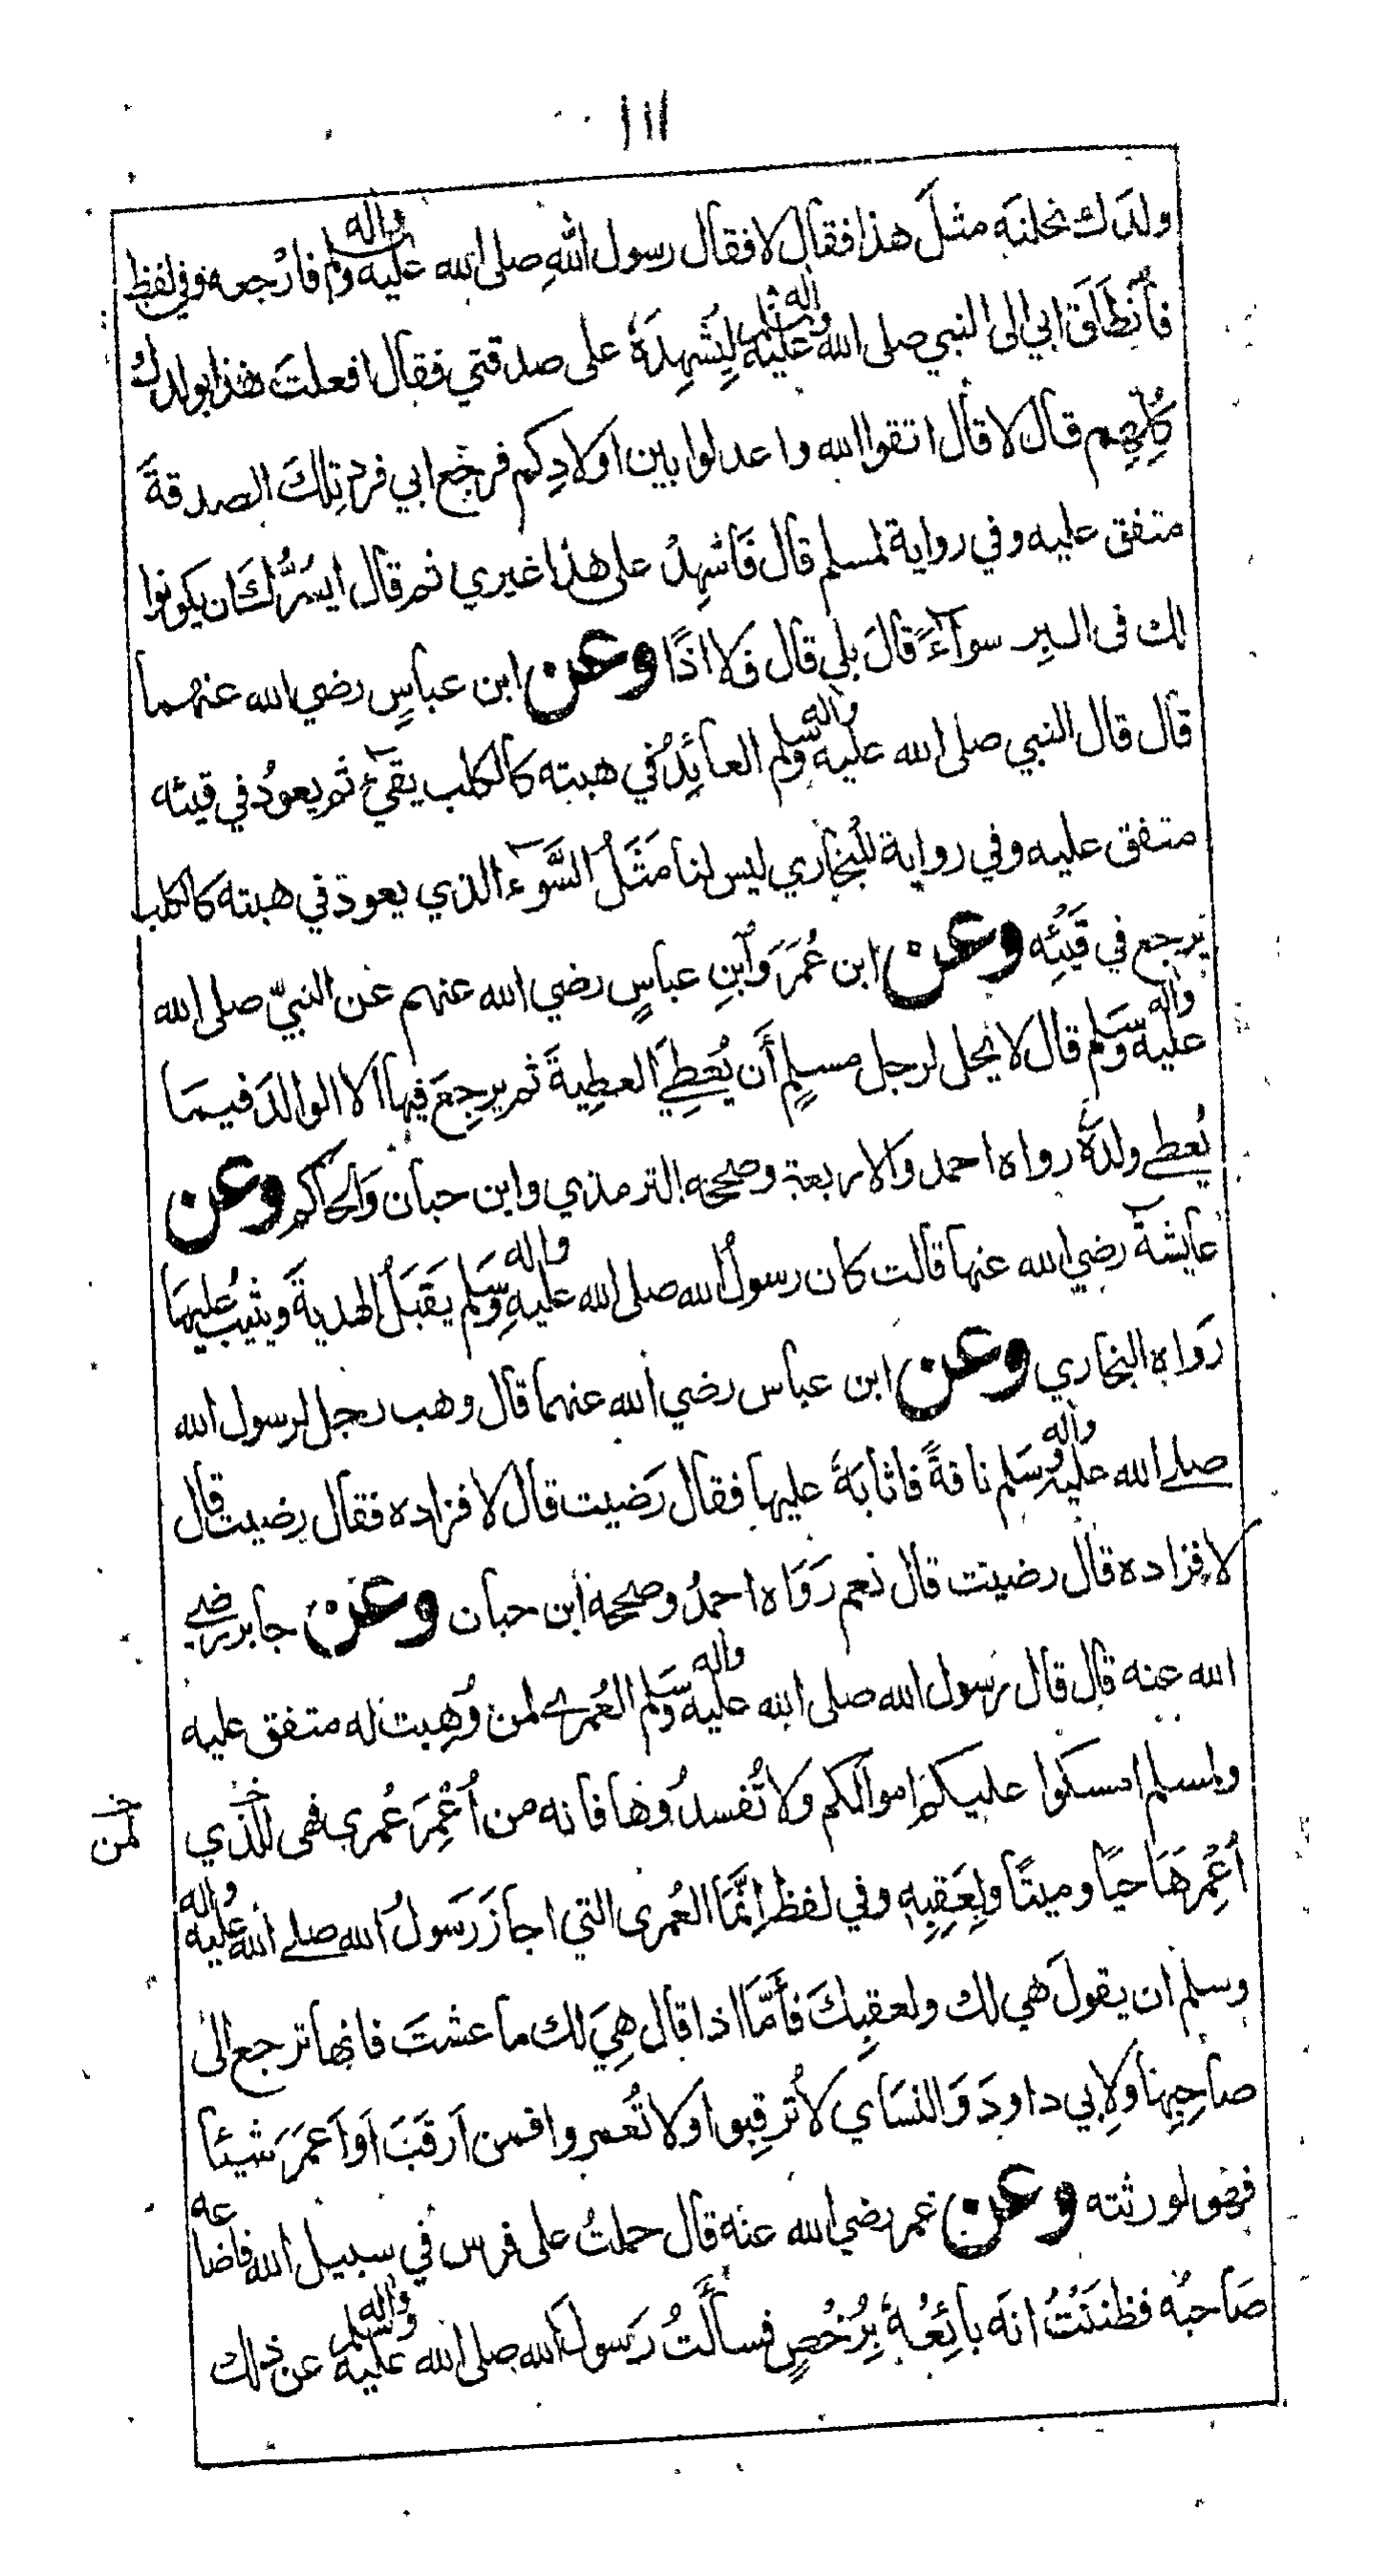 ١١١
ولدك نحلته مثلَ هذا فقال لا فقال رسول اللهِ صلى الله عليه واله وسلم فارْجعه وفي لفظ
فانطَلَقَ ابي الى النبي صلى الله عليه واله وسلم لِيُشْهِدَهٗ على صدقتي فقال افعلتَ هذا بولدك
كُلِّهِم قال لا قال اتقوا الله واعدلوا بين اولادِكم فرجع ابي فرد تِلكَ الصدقةَ
متفق عليه وفي رواية لمسلم قال فَاَشْهِدْ على هذا غيري ثم قال ايسُرُّكَ ان يكونوا
لك فى البِر سواءً قالَ بلى قال فَلا اذًا وعن ابن عباسٍ رضي الله عنهما
قال قال النبي صلى الله عليه واله وسلم العائِدُ في هبته كالكلب يقيءُ ثم يعودُ في قيئه
متفق عليه وفي رواية للبُخاري ليس لنا مَثَلُ السَّوْءِ الذي يعودُ في هبته كالكلب
يرجع في قَيْئِه وعن ابن عُمَرَ وَابنِ عباسٍ رضي الله عنهم عن النبيّ صلى الله
عليه واله وسلم قال لا يحل لرجل مسلِمٍ أَن يُعطِيَ العطِيةَ ثم يرجِعَ فيها الا الوالدَ فيمَا
يُعطي ولدَهٗ رواه احمد والاربعة وصححه الترمذي وابن حبان وَالحاكم وعن
عايشةَ رضي الله عنها قالت كان رسولُ الله صلى الله عليهِ واله وسَلم يَقبَلُ الهديةَ ويثيبُ عليها
رَواه البخاري وعن ابن عباس رضي الله عنهما قال وهب رجل لرسول الله
صلے الله عليه واله وسَلم ناقةً فاثابَهٗ عليها فقال رَضيت قال لا فزاده فقال رضيت قال
لا فزاده قال رضيت قال نعم رَوَاه احمدُ وصححهٗ ابن حبان وعن جابر رضي
الله عنه قال قال رسول الله صلى الله عليه واله وسَلم العُمرے لمن وُهِبت له متفق عليه
ولمسلم امسكوا عليكم اموالكم ولا تُفسدُوها فانه من أُعْمِرَ عُمرى فهى للذي
لمن
أُعْمِرهَا حيًا وميتًا ولِعَقِبِهٖ وفي لفظ اِنَّمَا العُمرى التي اجازَ رَسولُ الله صلے الله عليه واله
وسلم ان يقولَ هي لك ولعقبِكَ فأَمّا اذا قال هِيَ لك ما عشتَ فانها ترجع الى
صاحِبِها وَلابي داودَ وَالنسَاي لا تُرقِبوا ولا تُعمروا فمن اَرقَبَ اَو اَعمَرَ شيئا
فهو لورثته وعن عمر رضي الله عنه قال حملتُ على فرس في سبيل الله فاضاعه
صَاحبهٗ فظننْتُ انه بائِعُهٗ بِرُخْصٍ فسألتُ رَسولَ الله صلى الله عليه واله وسلم عن ذلك